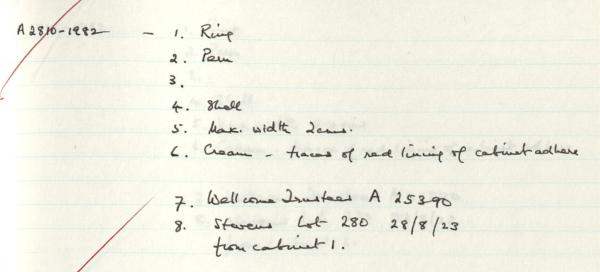 A2810-1982 - 1. Ring
2. Peru
3.
4. Shell
5. Max. width 2cms.
6. Cream - traces of red lining of cabinet adhere
7. Wellcome Trustees A 25390
8. Stevens Lot 280 28/8/23
from cabinet 1.